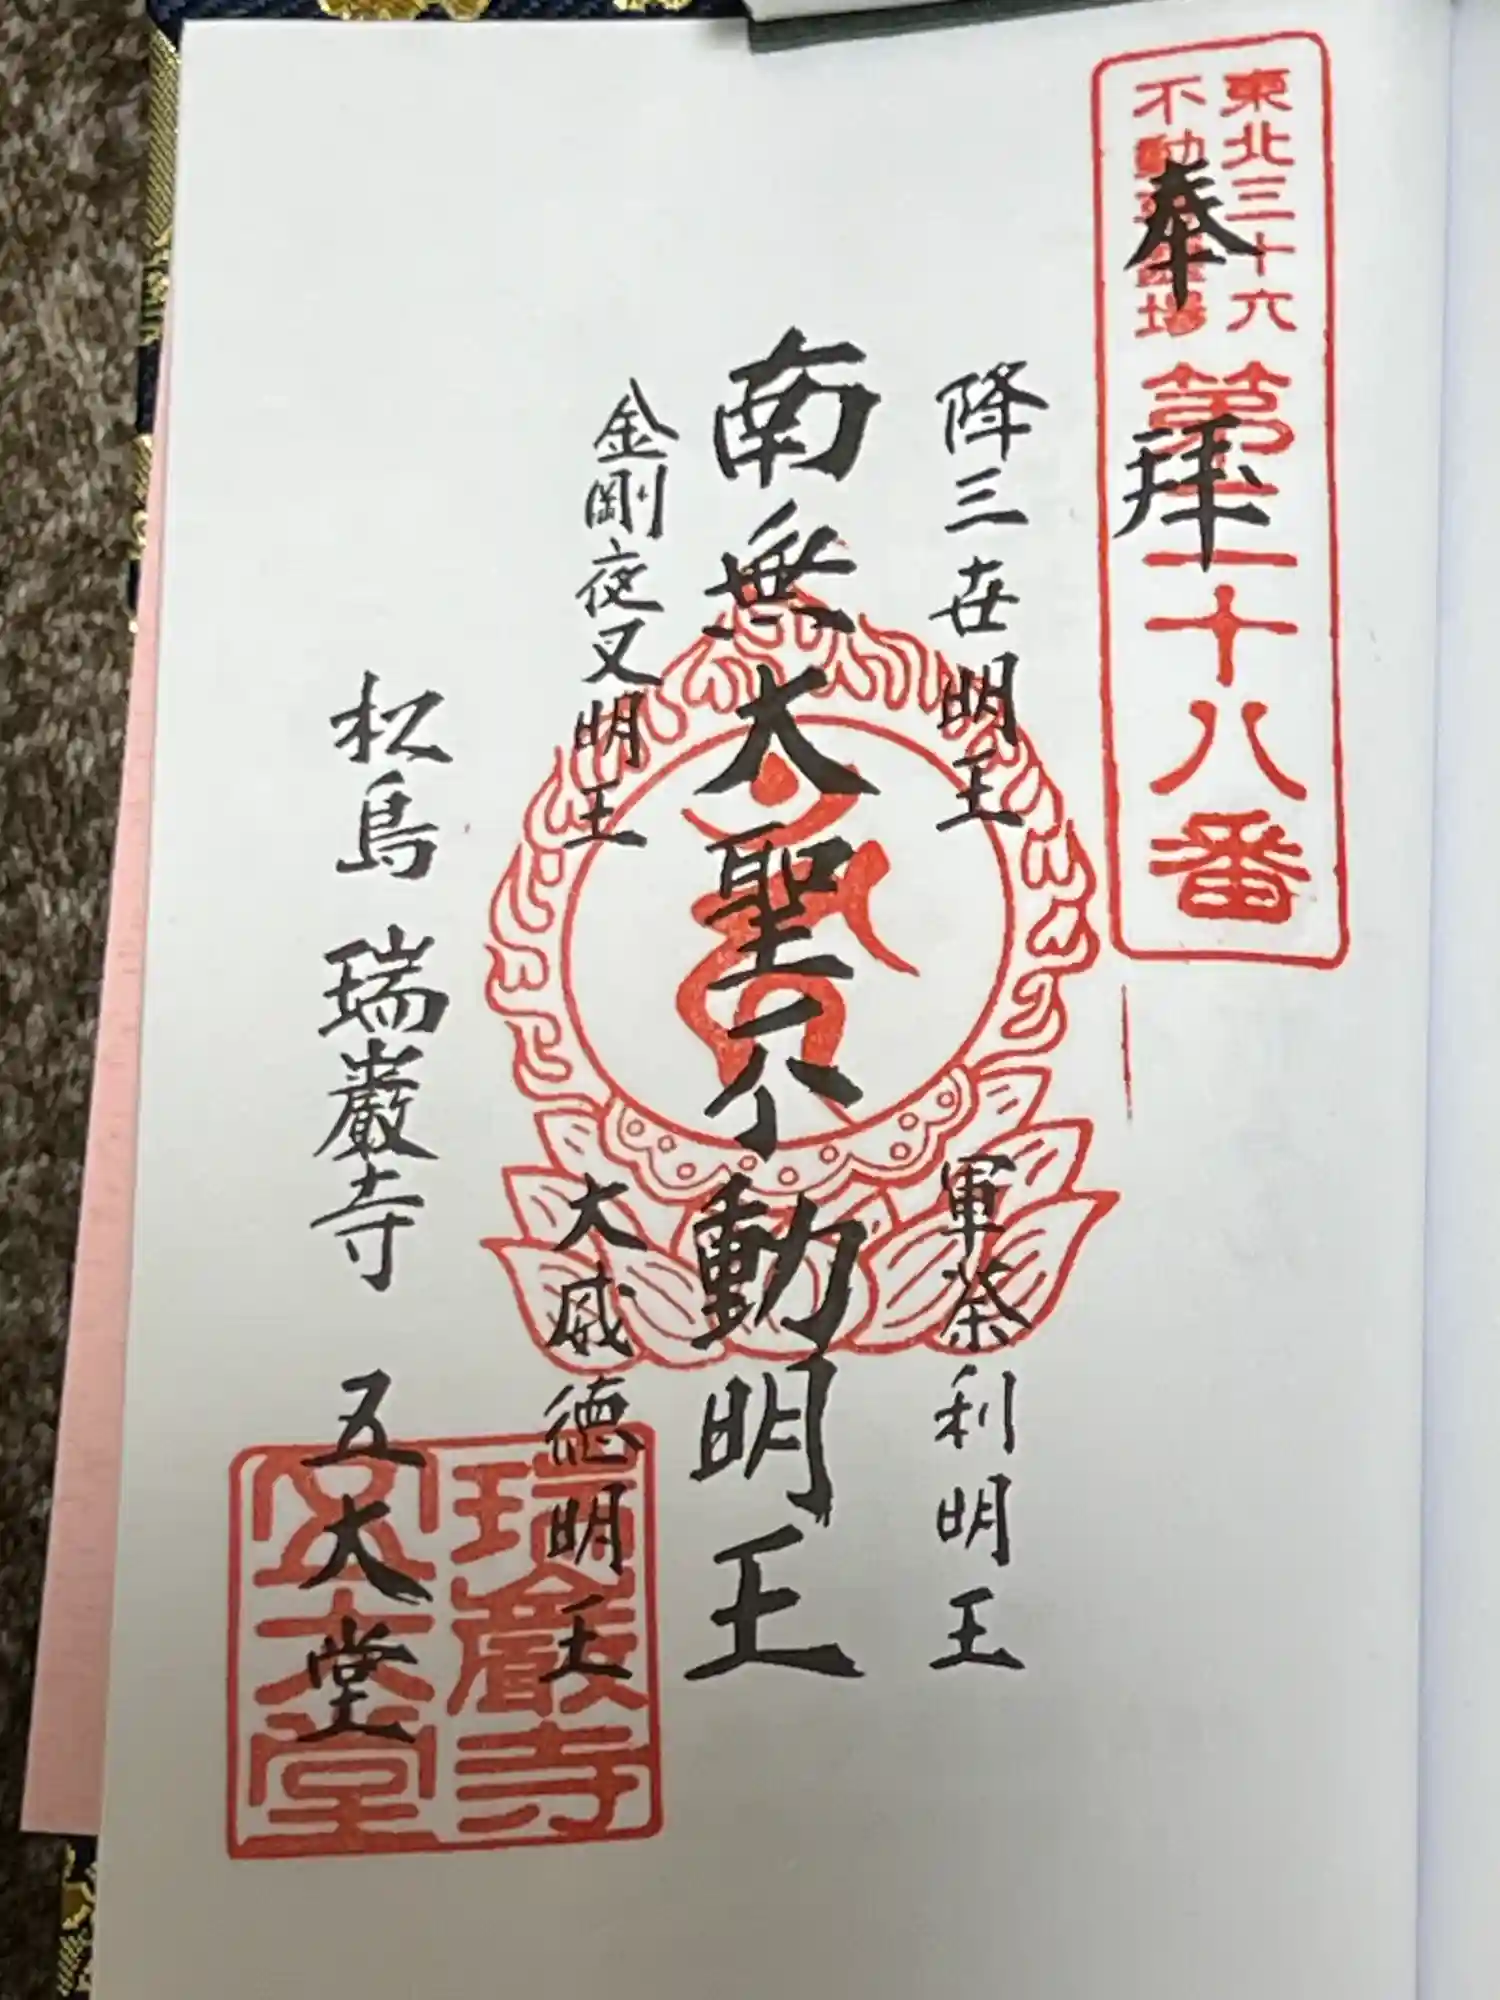 東北三十六
不動尊霊場
第二十八番
奉拝
降三世明王
軍荼利明王
南無大聖不動明王
金剛夜叉明王
大威德明王
松島 瑞巖寺 五大堂
瑞巖寺
五大堂